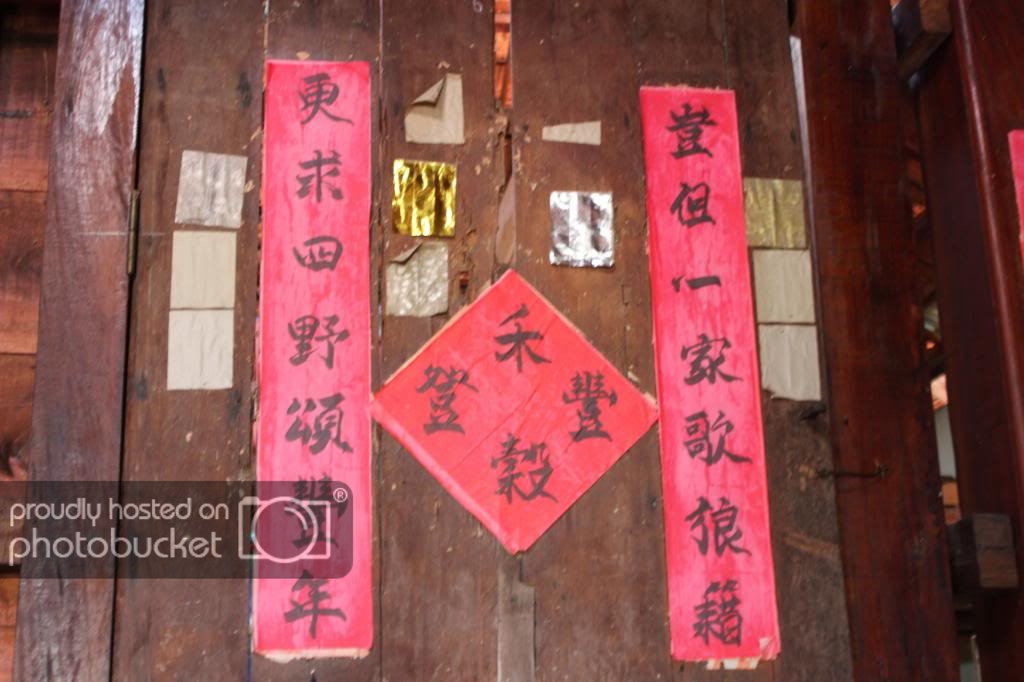 豈但一家歌狼籍
更求四野頌豐年
禾穀豐登
proudly hosted on
photobucket ®